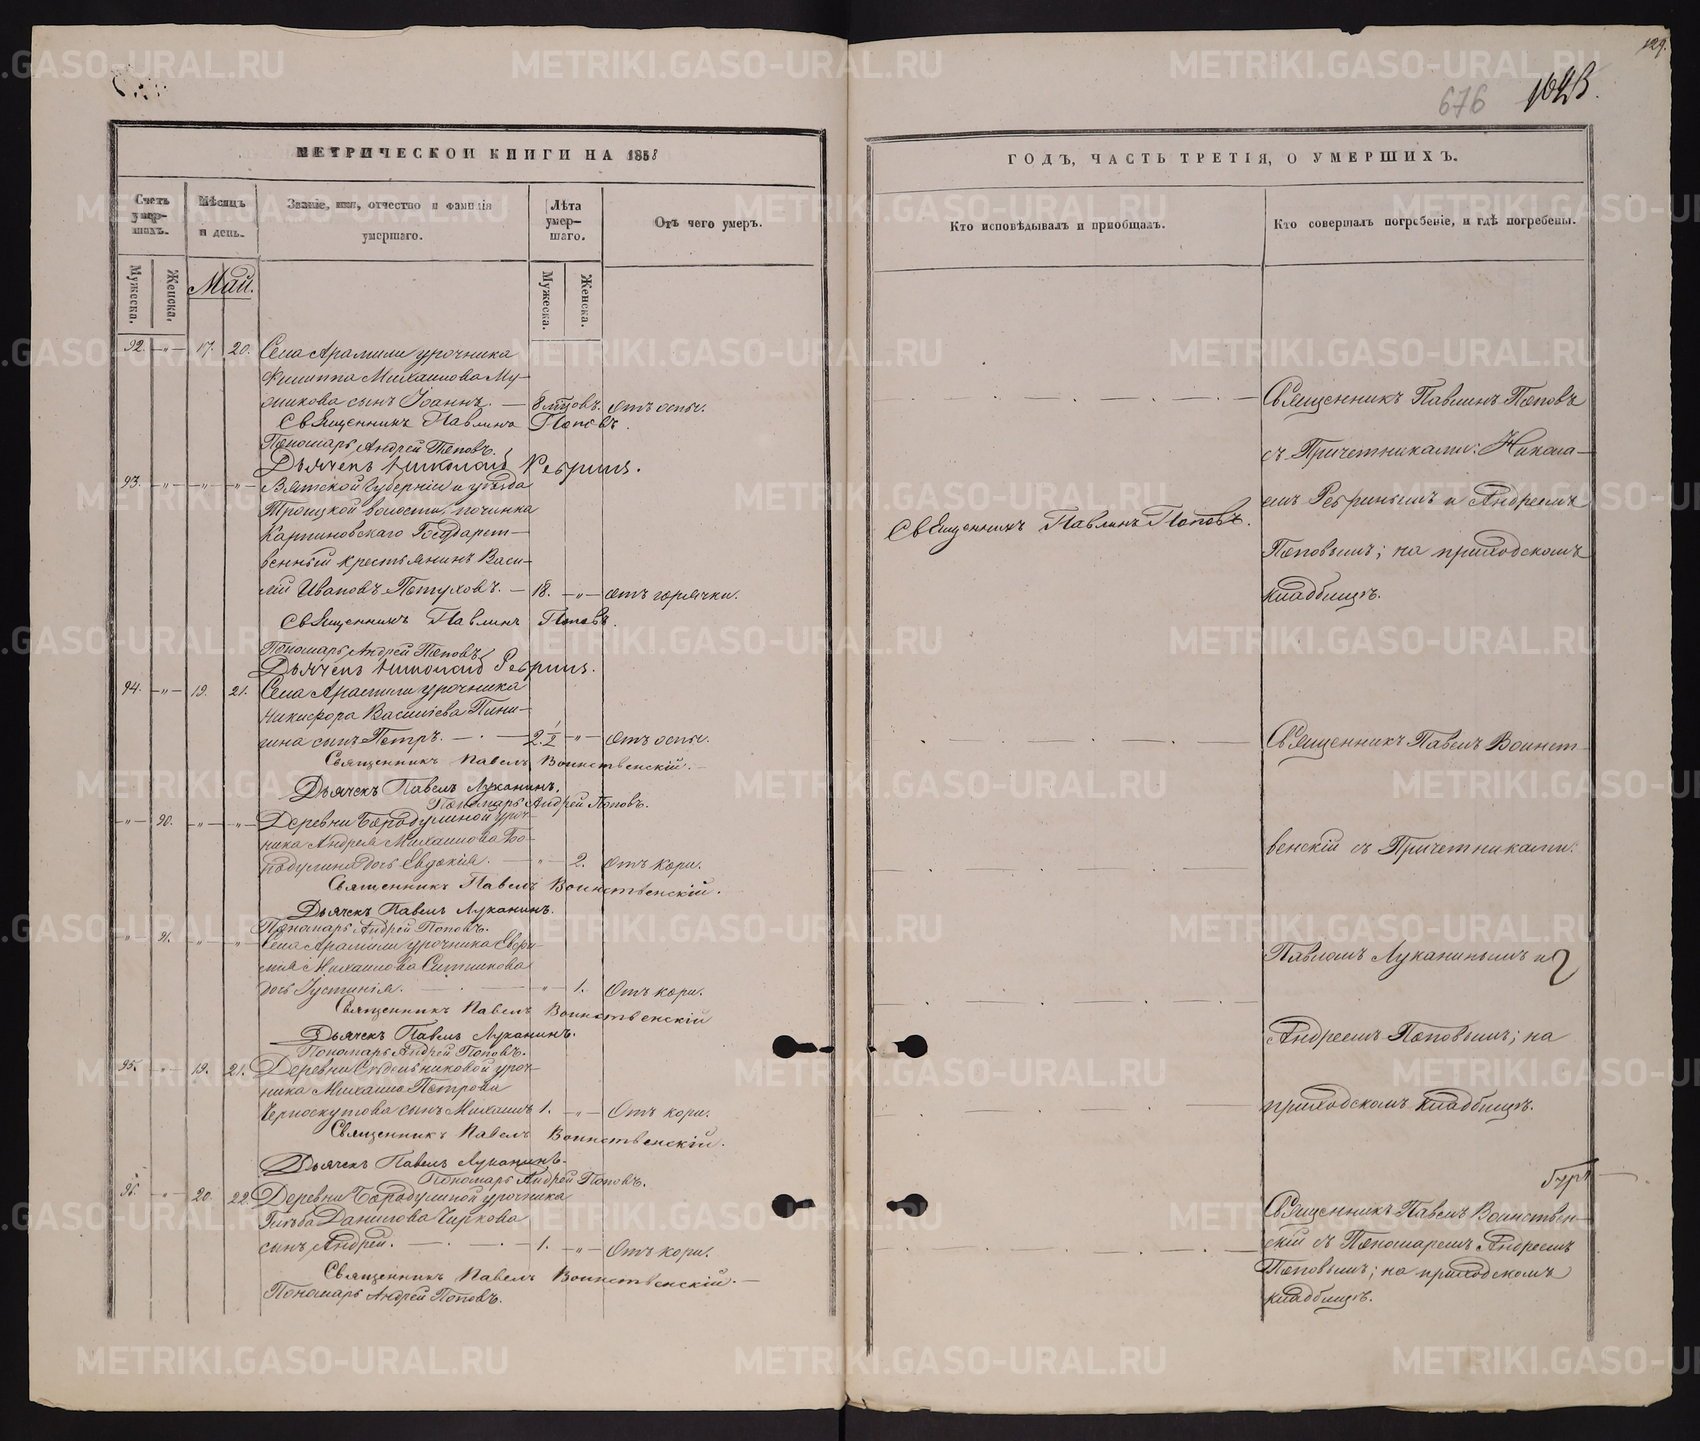 129.
676
1023.
МЕТРИЧЕСКОЙ КНИГИ НА 1858
Счетъ умер-шихъ.
Мѣсяцъ и день.
Званіе, имя, отчество и фамилія умершаго.
Лѣта умер-шаго.
Отъ чего умеръ.
Мужеска.
Женска.
Май.
Мужеска.
Женска.
92. —"— 17. 20. Села Арамили урочника
Филиппа Михаилова Му-
сынъ Іоаннъ. — 8 мѣсцовъ. отъ оспы.
Священникъ Павлинъ Поповъ.
Пономарь Андрей Поповъ.
Дьячекъ Николай Ребринъ.
93. —"— —"— —"— Вятской Губерніи и уѣзда
Троицкой волости, починка
Карпиновскаго Государст-
венный крестьянинъ Васи-
лій Ивановъ Пѣтуховъ. — 18. —"— отъ горячки.
Священникъ Павлинъ Поповъ.
Пономарь Андрей Поповъ.
Дьячекъ Николай Ребринъ.
94. —"— 19. 21. Села Арамили урочника
Никифора Василіева Пини-
гина сынъ Петръ. — · — 2. —"— Отъ оспы.
Священникъ Павелъ Воинственскій.
Дьячекъ Павелъ Луканинъ.
Пономарь Андрей Поповъ.
—"— 90. —"— —"— Деревни Бородулиной уроч-
ника Андрея Михаилова Бо-
родулина дочь Евдокія. — —"— 2. Отъ кори.
Священникъ Павелъ Воинственскій.
Дьячекъ Павелъ Луканинъ.
Пономарь Андрей Поповъ.
—"— 91. —"— —"— Села Арамили урочника
Михаилова Ситникова
дочь Іустинія. — · — —"— 1. Отъ кори.
Священникъ Павелъ Воинственскій
Дьячекъ Павелъ Луканинъ.
Пономарь Андрей Поповъ.
95. —"— 19. 21. Деревни уроч-
ника Михаила Петрова
Черноскутова сынъ Михаилъ 1. —"— Отъ кори.
Священникъ Павелъ Воинственскій.
Дьячекъ Павелъ Луканинъ.
Пономарь Андрей Поповъ.
96. —"— 20. 22. Деревни Бородулиной урочника
Глѣба Данилова Чиркова
сынъ Андрей. — · — · — 1. —"— Отъ кори.
Священникъ Павелъ Воинственскій.
Пономарь Андрей Поповъ.
ГОДЪ, ЧАСТЬ ТРЕТІЯ, О УМЕРШИХЪ.
Кто исповѣдывалъ и пріобщалъ.
Кто совершалъ погребеніе, и гдѣ погребены.
Священникъ Павлинъ Поповъ
съ Причетниками: Никола-
емъ Ребринымъ и Андреемъ
Священникъ Павлинъ Поповъ.
Поповымъ; на приходскомъ
кладбищѣ.
Священникъ Павелъ Воинст-
венскій съ Причетниками:
Павломъ Луканинымъ и
Андреемъ Поповымъ; на
приходскомъ кладбищѣ.
Священникъ Павелъ Воинствен-
скій съ Пономаремъ Андреемъ
Поповымъ; на приходскомъ
кладбищѣ.
METRIKI.GASO-URAL.RU